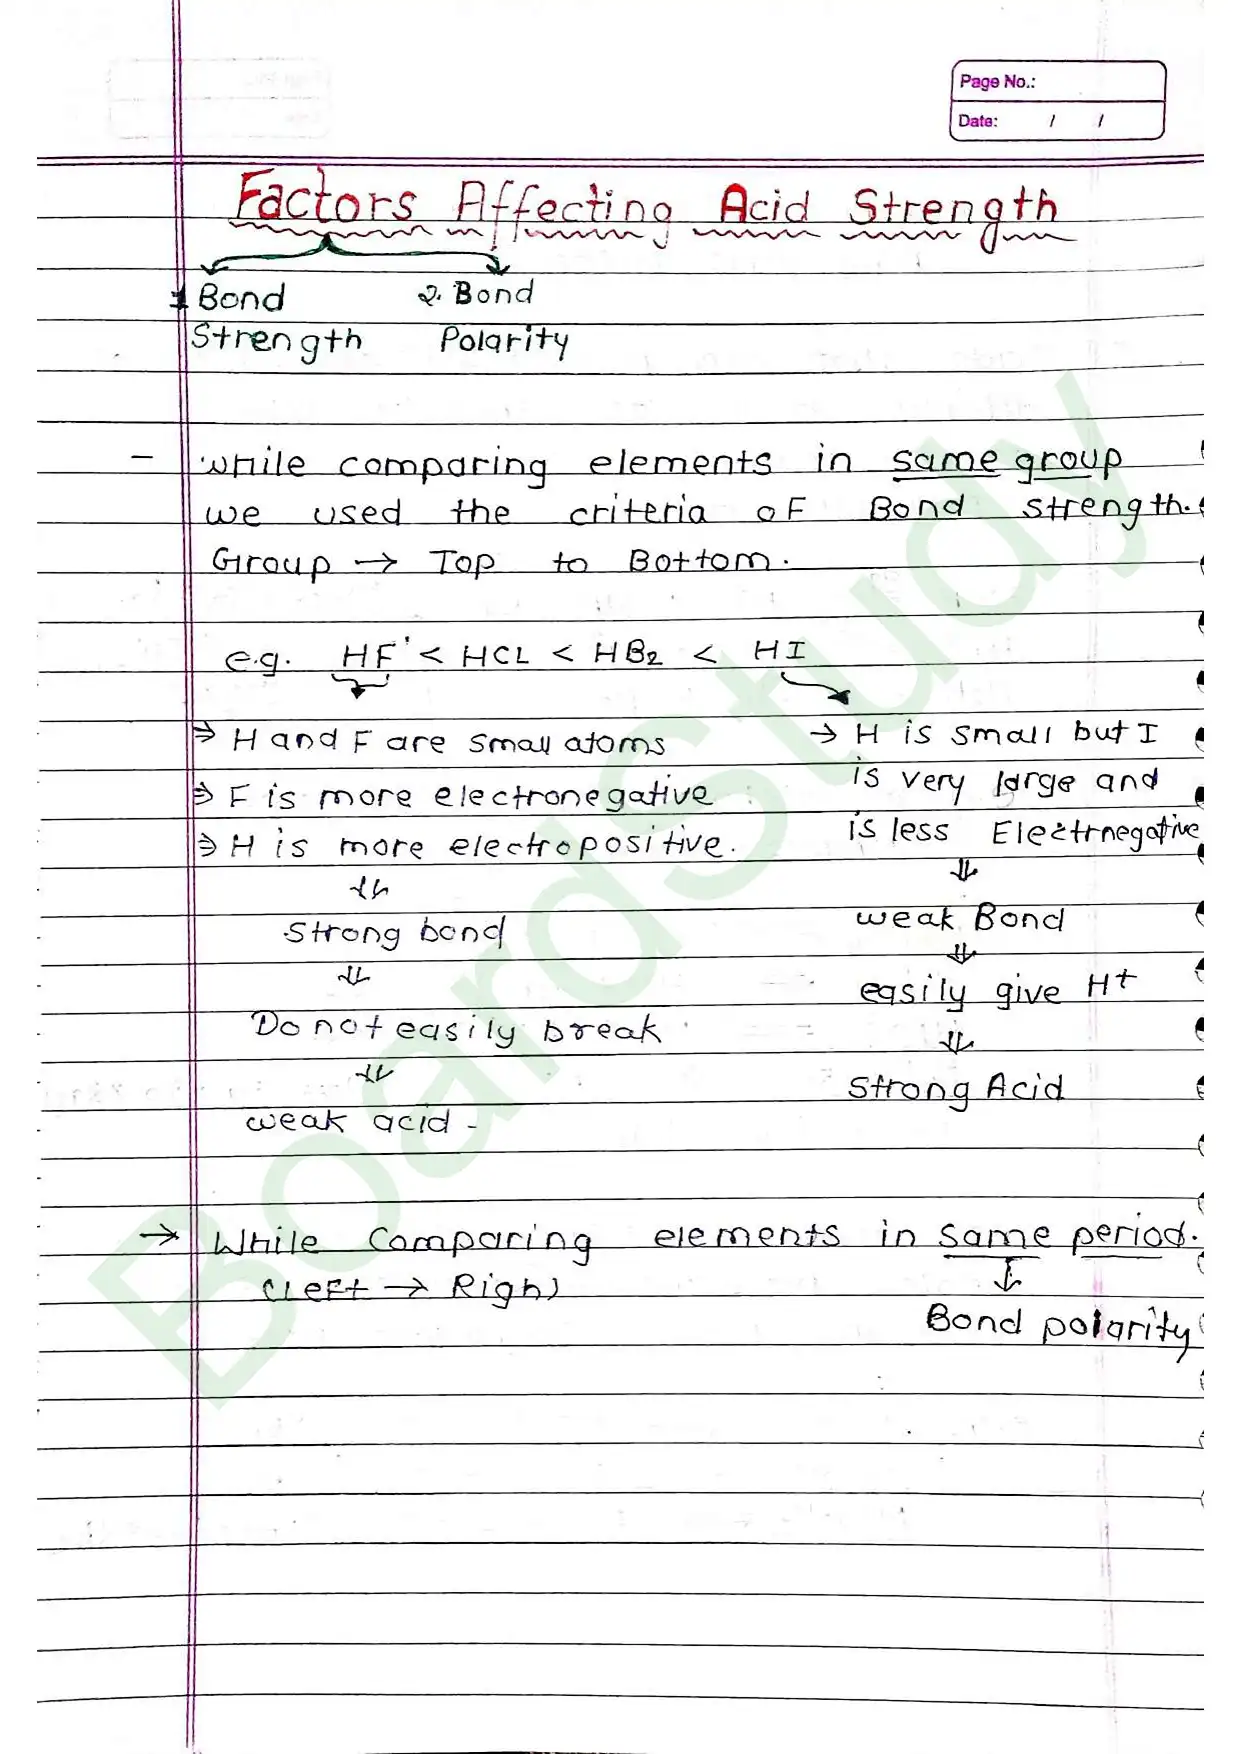 Page No.:
Date: / /
Factors Affecting Acid Strength
1 Bond Strength
2. Bond Polarity
- While comparing elements in same group
we used the criteria of Bond strength.
Group → Top to Bottom.
e.g. HF < HCL < HB2 < HI
⇒ H and F are small atoms
⇒ F is more electronegative
⇒ H is more electropositive.
⇓
Strong bond
⇓
Do not easily break
⇓
weak acid -
→ H is small but I
is very large and
is less Electrnegative
⇓
weak Bond
⇓
easily give H+
⇓
Strong Acid
→ While Comparing elements in same period.
(Left → Righ)
↓
Bond polarity
BoardStudy